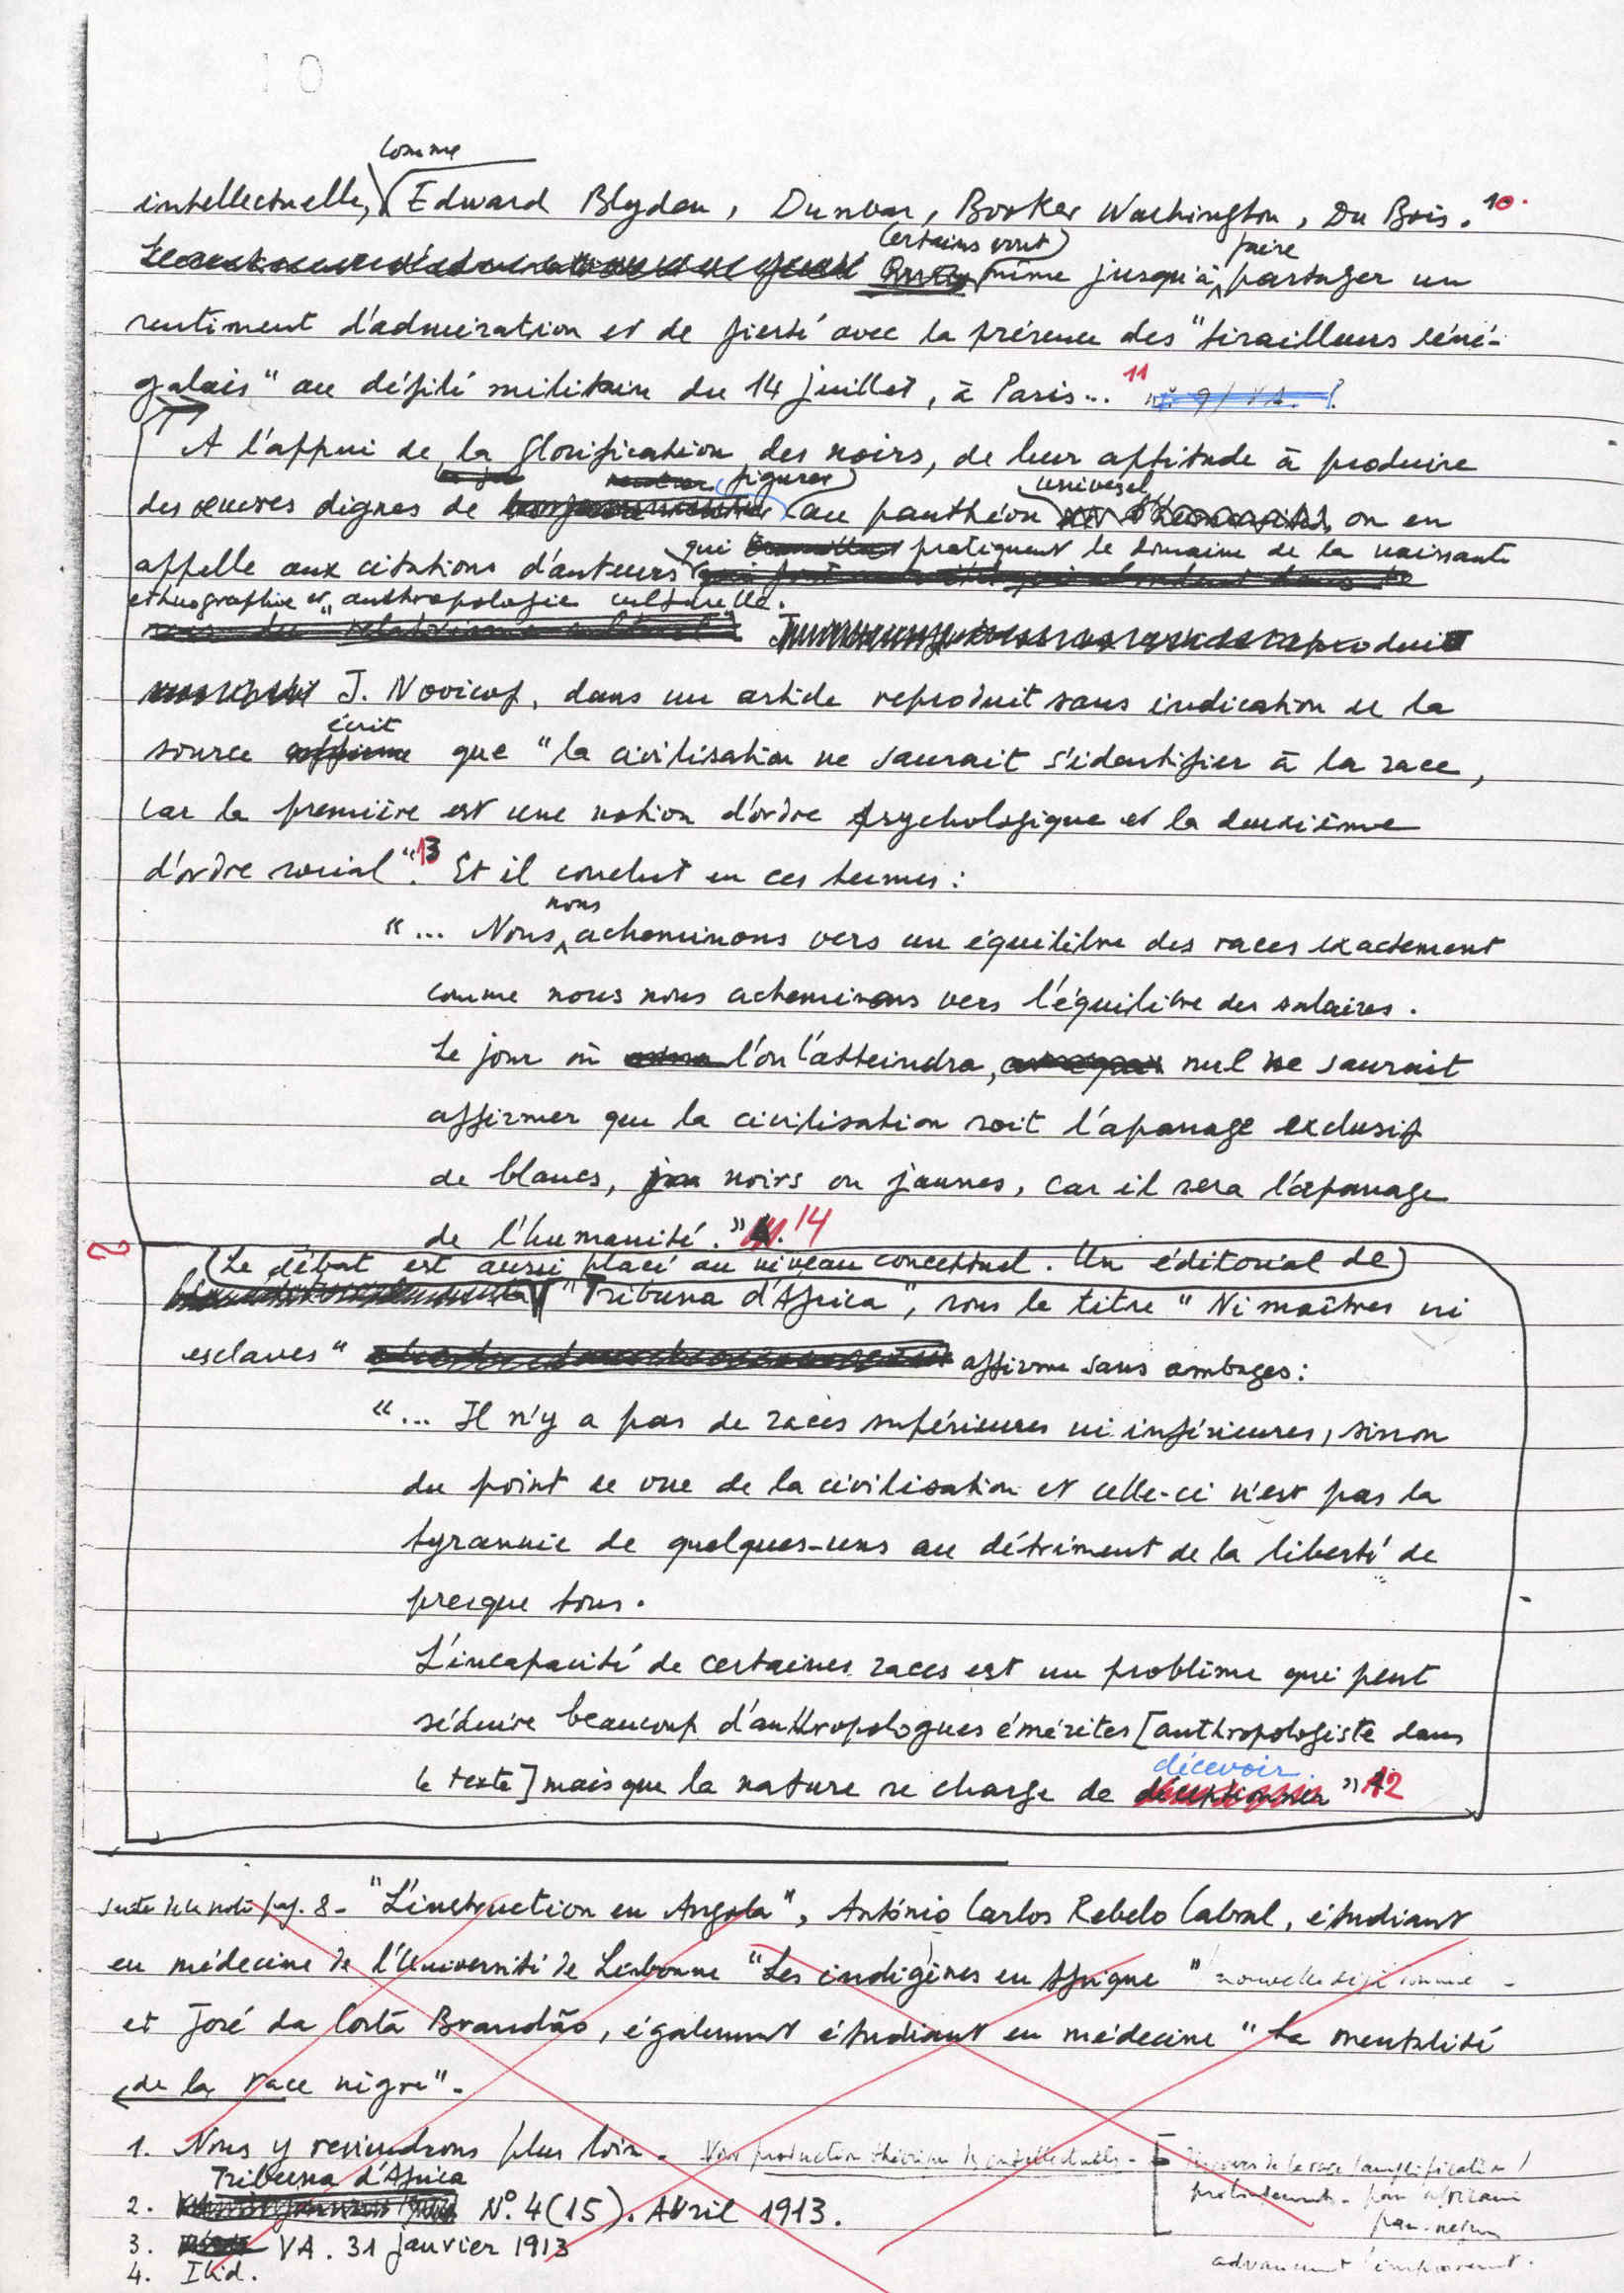 10
comme
intellectuelle, Edward Blyden, Dunbar, Booker Washington, Du Bois. 10.
certains vont faire
même jusqu'à partager un
sentiment d'admiration et de fierté avec la présence des "tirailleurs séné-
galais" au défilé militaire du 14 juillet, à Paris... 11
A l'appui de la glorification des noirs, de leur aptitude à produire
figurer universel
des œuvres dignes de au panthéon on en
qui pratiquent le domaine de la naissante
appelle aux citations d'auteurs
ethnographie et anthropologie culturelle.
"relativisme culturel" reproduit
J. Novicof, dans un article reproduit sans indication de la
écrit
source affirme que "la civilisation ne saurait s'identifier à la race,
car la première est une notion d'ordre psychologique et la deuxième
d'ordre social". 13 Et il conclut en ces termes :
nous
"... Nous acheminons vers un équilibre des races exactement
comme nous nous acheminons vers l'équilibre des salaires.
Le jour où l'on l'atteindra, nul ne saurait
affirmer que la civilisation soit l'apanage exclusif
de blancs, noirs ou jaunes, car il sera l'apanage
de l'humanité." 14
2
Le débat est aussi placé au niveau conceptuel. Un éditorial de
"Tribuna d'Africa", sous le titre "Ni maîtres ni
esclaves" affirme sans ambages :
"... Il n'y a pas de races supérieures ni inférieures, sinon
du point de vue de la civilisation et celle-ci n'est pas la
tyrannie de quelques-uns au détriment de la liberté de
presque tous.
L'incapacité de certaines races est un problème qui peut
séduire beaucoup d'anthropologues émérites [anthropologiste dans
décevoir
le texte] mais que la nature se charge de déceptionner" 12
suite de la note pag. 8 - "L'instruction en Angola", António Carlos Rebelo Cabral, étudiant
en médecine de l'Université de Lisbonne "Les indigènes en Afrique"
et José da Costa Brandão, également étudiant en médecine "La mentalité
de la race nègre".
1. Nous y reviendrons plus loin. Voir production théorique
Tribuna d'Africa
2. Nº. 4 (15). Avril 1913.
pan-africain
3. VA. 31 janvier 1913
4. Ibid.